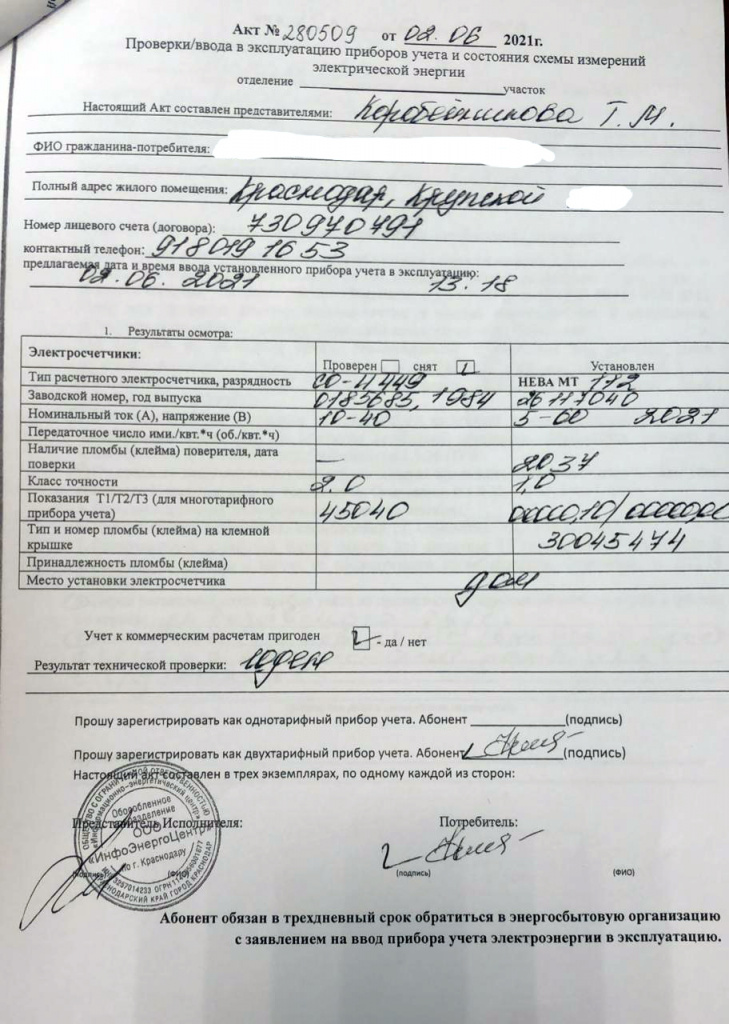 Акт № 280509 от 02.06 2021г.
Проверки/ввода в эксплуатацию приборов учета и состояния схемы измерений
электрической энергии
отделение участок
Настоящий Акт составлен представителями: Коробейникова Т.М.
ФИО гражданина-потребителя:
Полный адрес жилого помещения: Краснодар, Крупской
Номер лицевого счета (договора): 730970791
контактный телефон: 918019 1653
предлагаемая дата и время ввода установленного прибора учета в эксплуатацию:
02.06.2021 13.18
1. Результаты осмотра:
Электросчетчики: Проверен снят Установлен
Тип расчетного электросчетчика, разрядность СО-И449 НЕВА МТ 112
Заводской номер, год выпуска 0185685, 1984 26117040
Номинальный ток (А), напряжение (В) 10-40 5-60 2021
Передаточное число ими./квт.*ч (об./квт.*ч)
Наличие пломбы (клейма) поверителя, дата
поверки — 2037
Класс точности 2.0 1,0
Показания Т1/Т2/Т3 (для многотарифного
прибора учета) 45040 00000,10/
Тип и номер пломбы (клейма) на клемной
крышке 30045474
Принадлежность пломбы (клейма)
Место установки электросчетчика дом
Учет к коммерческим расчетам пригоден - да / нет
Результат технической проверки: годен
Прошу зарегистрировать как однотарифный прибор учета. Абонент (подпись)
Прошу зарегистрировать как двухтарифный прибор учета. Абонент (подпись)
Настоящий акт составлен в трех экземплярах, по одному каждой из сторон:
Представитель Исполнителя: Потребитель:
(подпись) (ФИО) (подпись) (ФИО)
ОБЩЕСТВО С ОГРАНИЧЕННОЙ ОТВЕТСТВЕННОСТЬЮ
«Информационно-энергетический центр»
Обособленное
подразделение
ООО
«ИнфоЭнергоЦентр»
по г. Краснодару
КРАСНОДАРСКИЙ КРАЙ ГОРОД КРАСНОДАР
Абонент обязан в трехдневный срок обратиться в энергосбытовую организацию
с заявлением на ввод прибора учета электроэнергии в эксплуатацию.